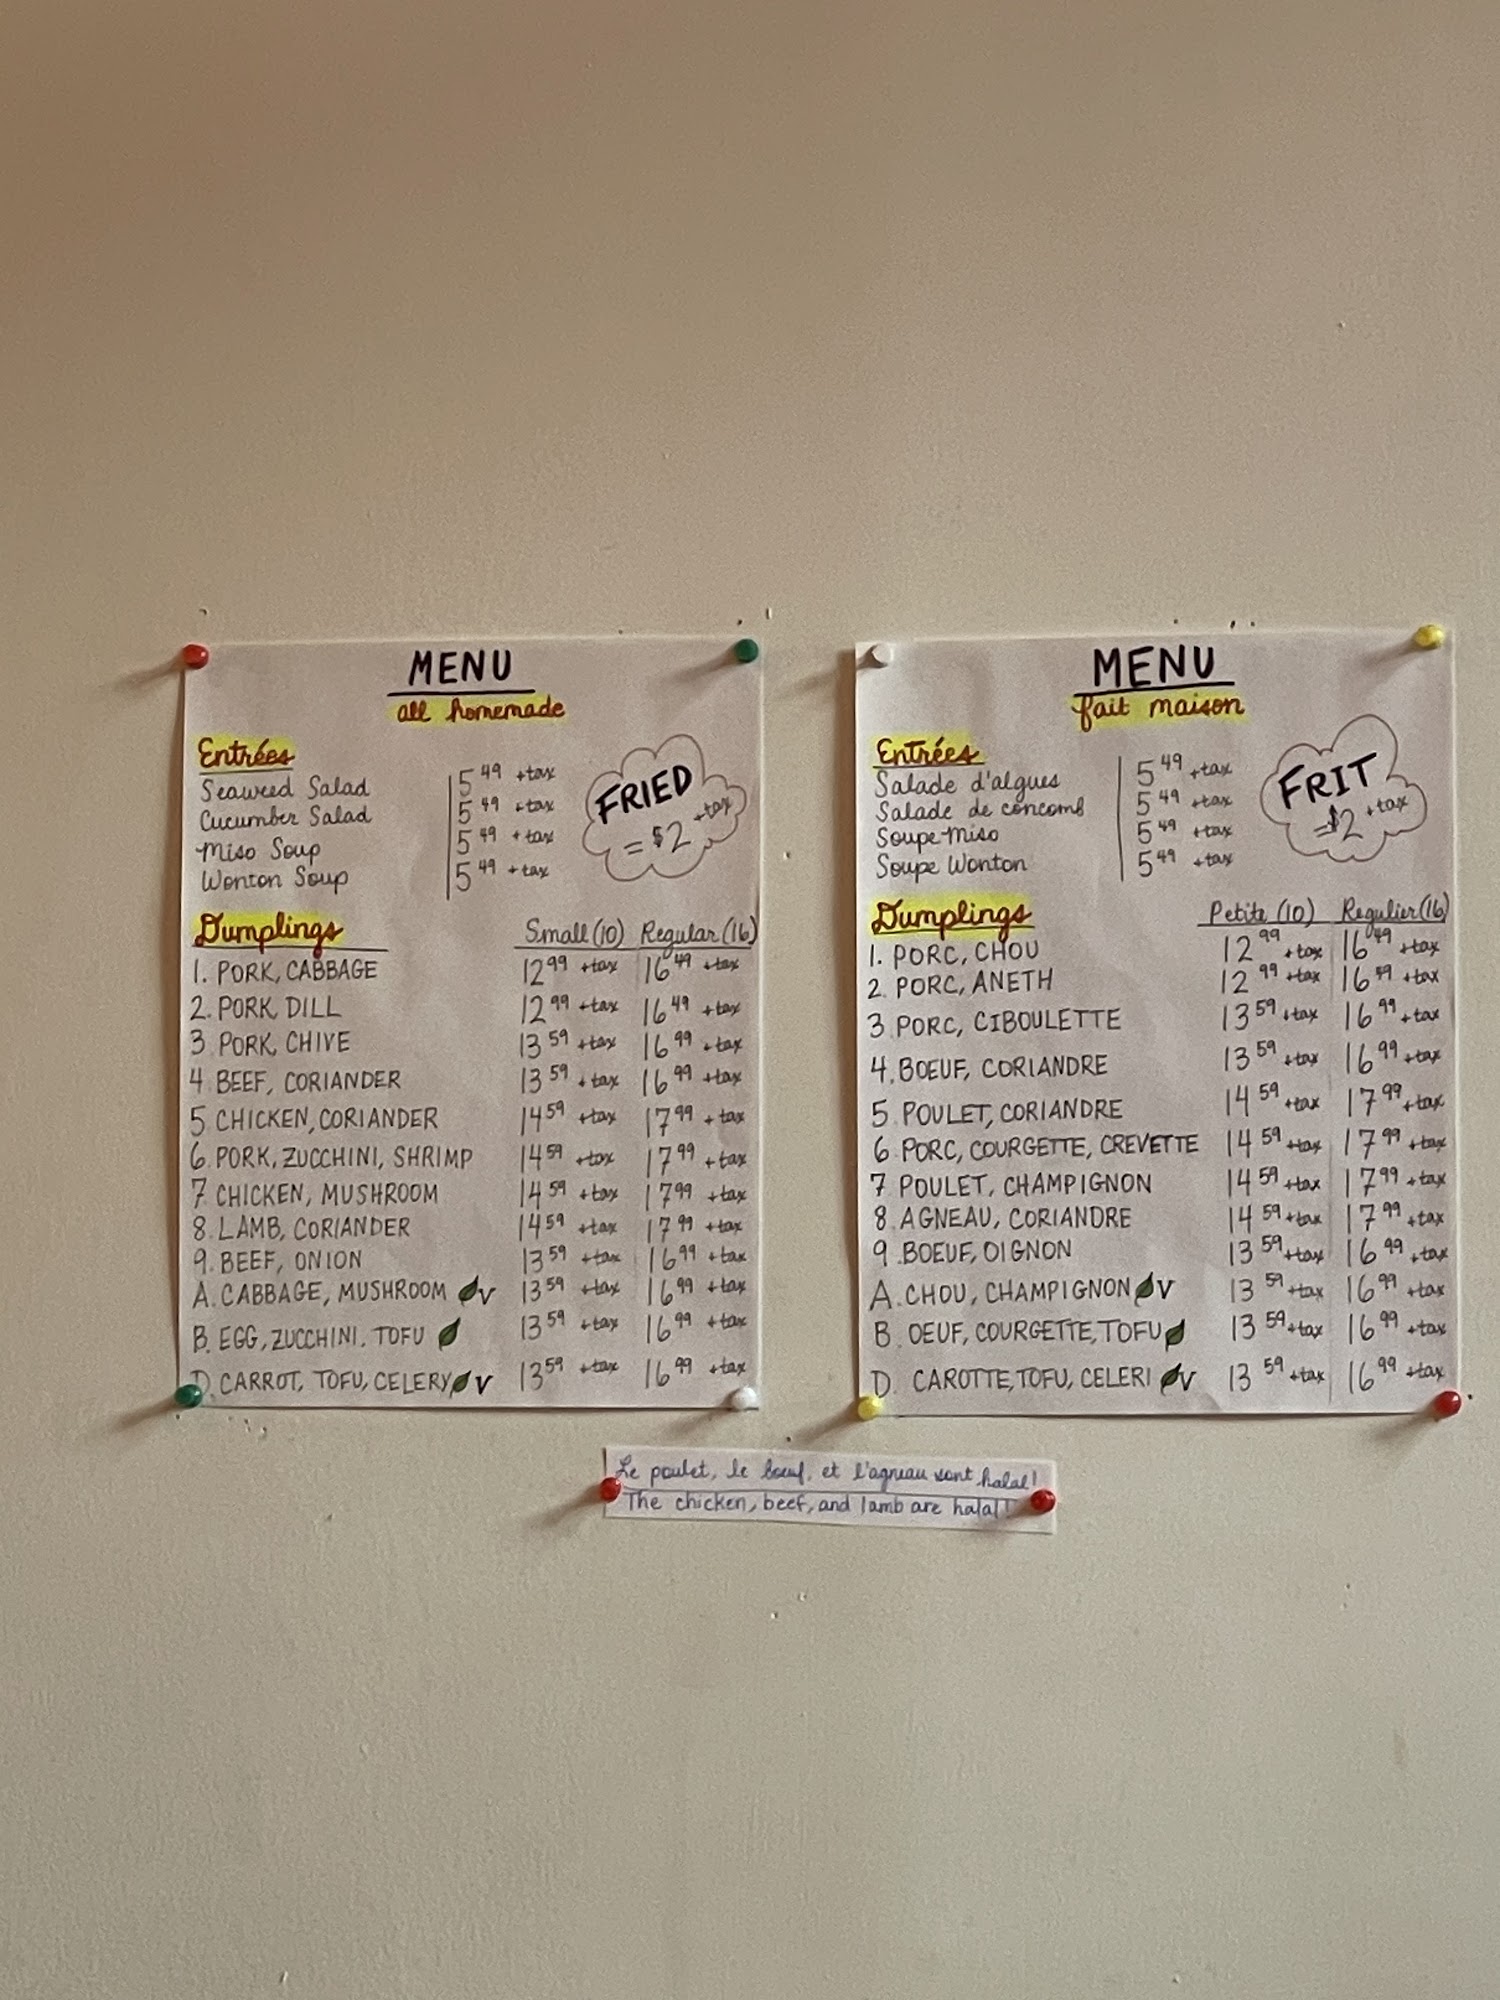 MENU
all homemade
Entrées
Seaweed Salad 5 49 +tax
Cucumber Salad 5 49 +tax
Miso Soup 5 49 +tax
Wonton Soup 5 49 +tax
FRIED
= $2 +tax
Dumplings Small (10) Regular (16)
1. PORK, CABBAGE 12 99 +tax 16 49 +tax
2. PORK, DILL 12 99 +tax 16 49 +tax
3. PORK, CHIVE 13 59 +tax 16 99 +tax
4. BEEF, CORIANDER 13 59 +tax 16 99 +tax
5 CHICKEN, CORIANDER 14 59 +tax 17 99 +tax
6. PORK, ZUCCHINI, SHRIMP 14 59 +tax 17 99 +tax
7 CHICKEN, MUSHROOM 14 59 +tax 17 99 +tax
8. LAMB, CORIANDER 14 59 +tax 17 99 +tax
9. BEEF, ONION 13 59 +tax 16 99 +tax
A. CABBAGE, MUSHROOM V 13 59 +tax 16 99 +tax
B. EGG, ZUCCHINI, TOFU 13 59 +tax 16 99 +tax
D. CARROT, TOFU, CELERY V 13 59 +tax 16 99 +tax
MENU
fait maison
Entrées
Salade d'algues 5 49 +tax
Salade de concomb 5 49 +tax
Soupe Miso 5 49 +tax
Soupe Wonton 5 49 +tax
FRIT
= $2 +tax
Dumplings Petite (10) Regulier (16)
1. PORC, CHOU 12 99 +tax 16 49 +tax
2. PORC, ANETH 12 99 +tax 16 +tax
3. PORC, CIBOULETTE 13 59 +tax 16 99 +tax
4. BOEUF, CORIANDRE 13 59 +tax 16 99 +tax
5 POULET, CORIANDRE 14 59 +tax 17 99 +tax
6 PORC, COURGETTE, CREVETTE 14 59 +tax 17 99 +tax
7 POULET, CHAMPIGNON 14 59 +tax 17 99 +tax
8. AGNEAU, CORIANDRE 14 59 +tax 17 99 +tax
9. BOEUF, OIGNON 13 59 +tax 16 99 +tax
A. CHOU, CHAMPIGNON V 13 59 +tax 16 99 +tax
B. OEUF, COURGETTE, TOFU 13 59 +tax 16 99 +tax
D. CAROTTE, TOFU, CELERI V 13 59 +tax 16 99 +tax
Le poulet, le boeuf, et l'agneau sont halal!
The chicken, beef, and lamb are halal!